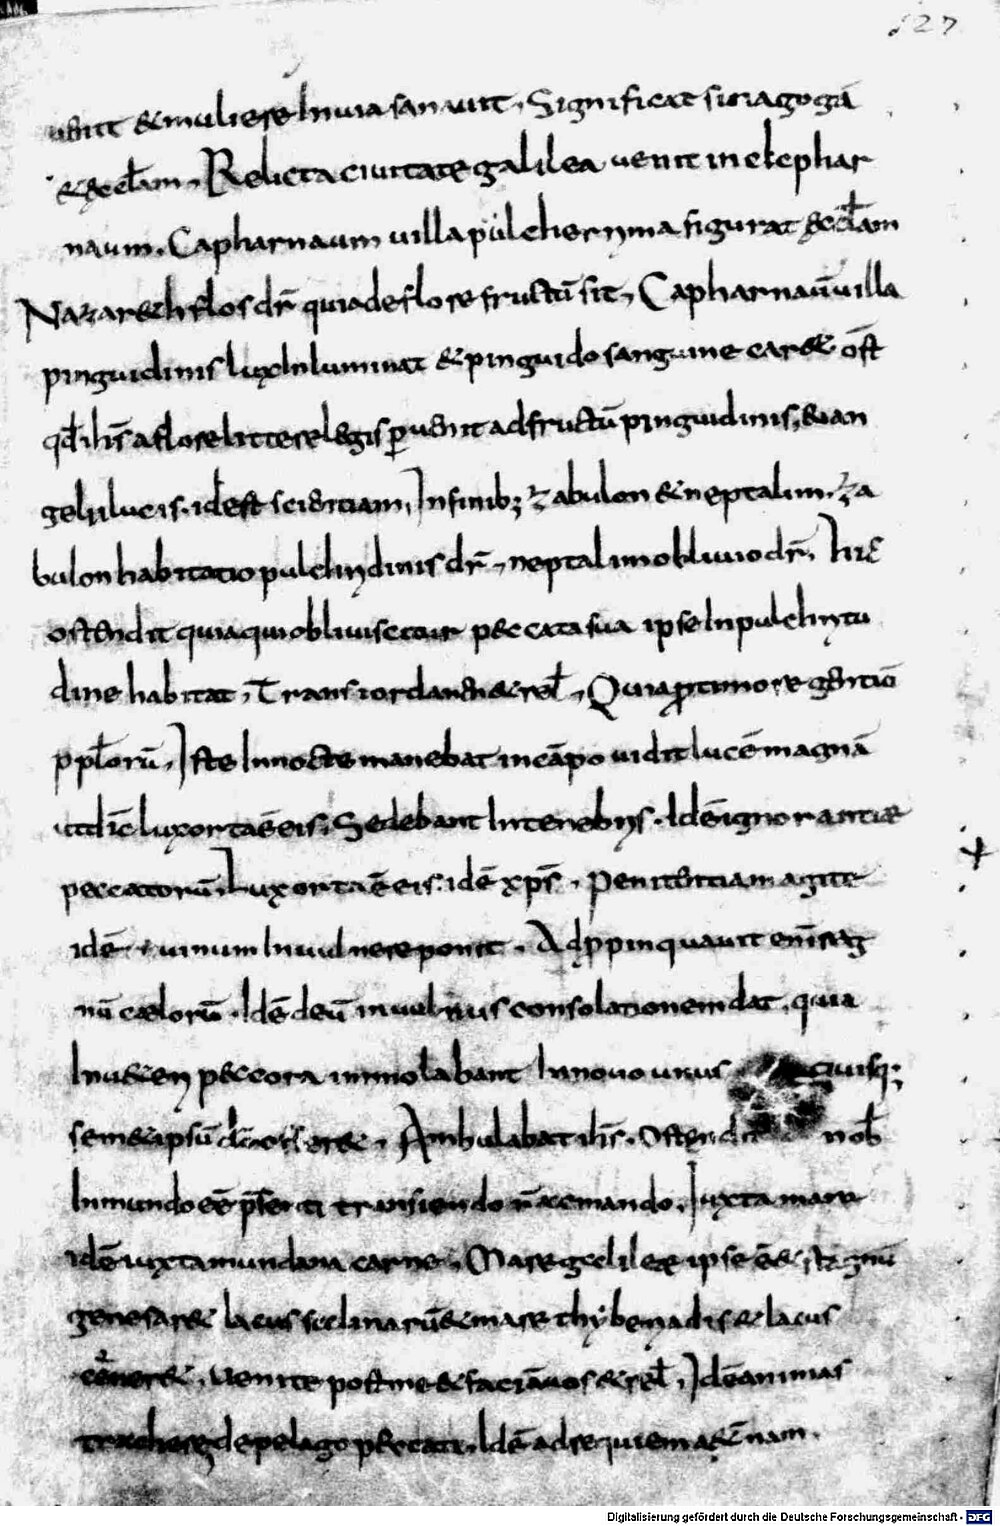 127
uenit & muliere In uia sanauit, Significat sinagogā
& eccl̄am, Relicta ciuitate galilea uenit in ekephar
naum. Capharnaum uilla pulcherryma figurat eccl̄am
Nazareth flos dr̄ quia de flore fructū sit, Capharnaū uilla
pinguidinis lux Inluminat & pinguido sanguine car& ōst
qd̄ ih̄s a flore littere legis puenit ad fructū pinguidinis, euan
gelii lucis. idest scientiam, In finib; zabulon & neptalim. za
bulon habitatio pulchrydinis dr̄, neptalim obliuio dr̄,
ostendit quia qui obliuiscitur peccata sua ipse In pulchrytu
dine habitat, Trans iordanen & rel̄, Quia ptimore gentiū
p pl̄orū, Iste In nocte manebat in cāpo uidit lucē magnā
lux orta ē eis, Sedebant In tenebrys. Idē ignorantiæ
peccatorū, Lux orta ē eis. idē xp̄s, penitentiam agite
idē uinum In uulnere ponit, Adppinquauit enī reg
nū cælorū. Idē deū in uulneris consolationem dat, quia
In ueteri peccora immolabant In nouo unus
sem&ipsū Ambulabat ih̄s. Ostendit nob̄
In mundo eē transiendo remando, Iuxta mare
idē iuxta mundana carne, Mare galileæ ipse ē & stagnū
genesar& lacus salinarū & mare thyberyadis & lacus
uenite post me & faciā uos & rel̄, Idē animas
trahere de pelago peccati, Idē ad requiem æt̄nam.
Digitalisierung gefördert durch die Deutsche Forschungsgemeinschaft - DFG